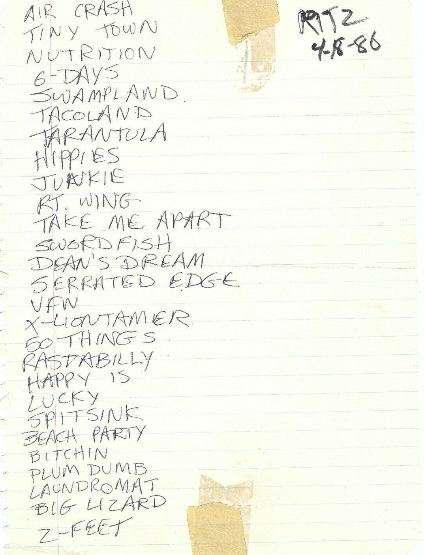 AIR CRASH
TINY TOWN
NUTRITION
6-DAYS
SWAMPLAND.
TACOLAND
TARANTULA
HIPPIES
JUNKIE
RT. WING
TAKE ME APART
SWORDFISH
DEAN'S DREAM
SERRATED EDGE
VFW
X-LIONTAMER
50 THINGS
RASTABILLY
HAPPY IS
LUCKY
SPITSINK
BEACH PARTY
BITCHIN
PLUM DUMB
LAUNDROMAT
BIG LIZARD
2-FEET
RITZ
4-18-86